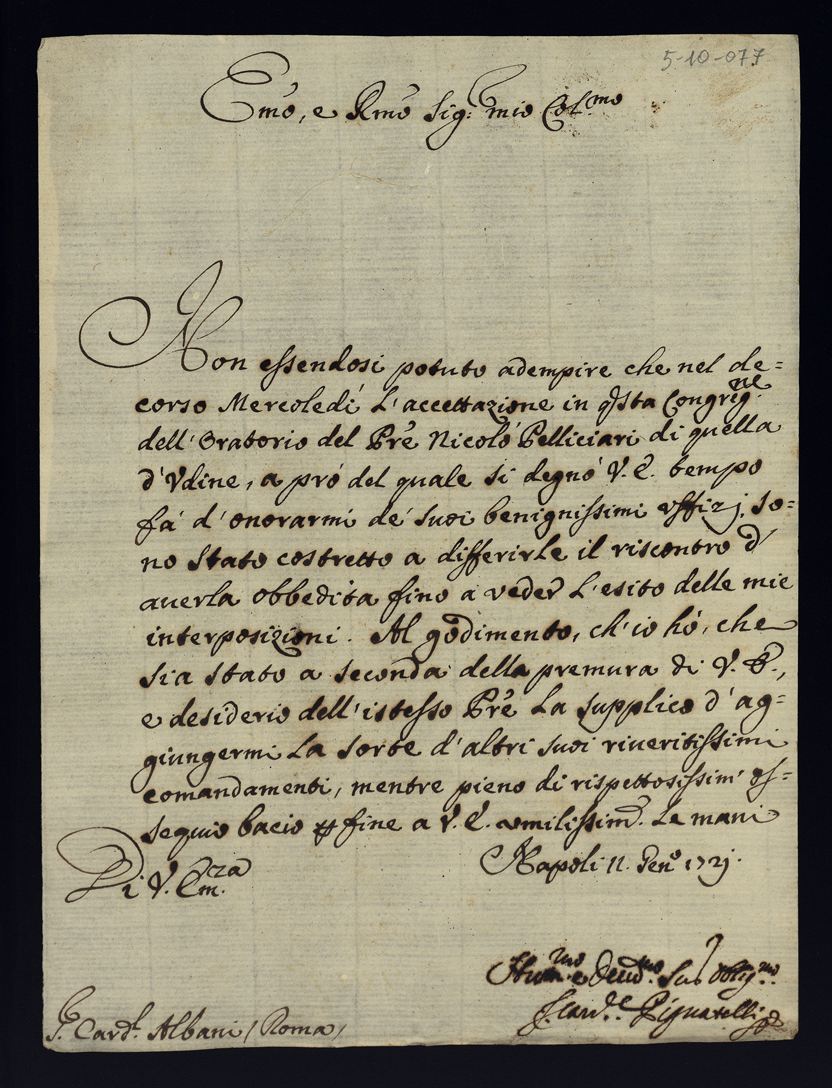 5-10-077
Emo, e Rmo Sig:r mio Col:mo
Non essendosi potuto adempire che nel de=
corso Mercoledì l'accettazione in qsta Congrig:ne
dell'Oratorio del Prẽ Nicolò Pelliciari di quella
d'Vdine, a prò del quale si degnò V. E. tempo
fà d'onorarmi de' suoi benignissimi vffizj, so=
no stato costretto a differirle il riscontro d'
averla obbedita fino a veder l'esito delle mie
interposizioni. Al godimento, ch'io hò, che
sia stato a seconda della premura di V. E.,
e desiderio dell'istesso Prẽ la supplico d'ag=
giungermi la sorte d'altri suoi riveritissimi
comandamenti, mentre pieno di rispettosissim' os=
sequio bacio per fine a V. E. vmilissim.e le mani
Napoli 11. Gen.o 1721.
Di V. Em.za
Hum.mo e Deud.mo Ser. Oblig.mo
F. Card.le Pignatelli
S. Card.l Albani (Roma)